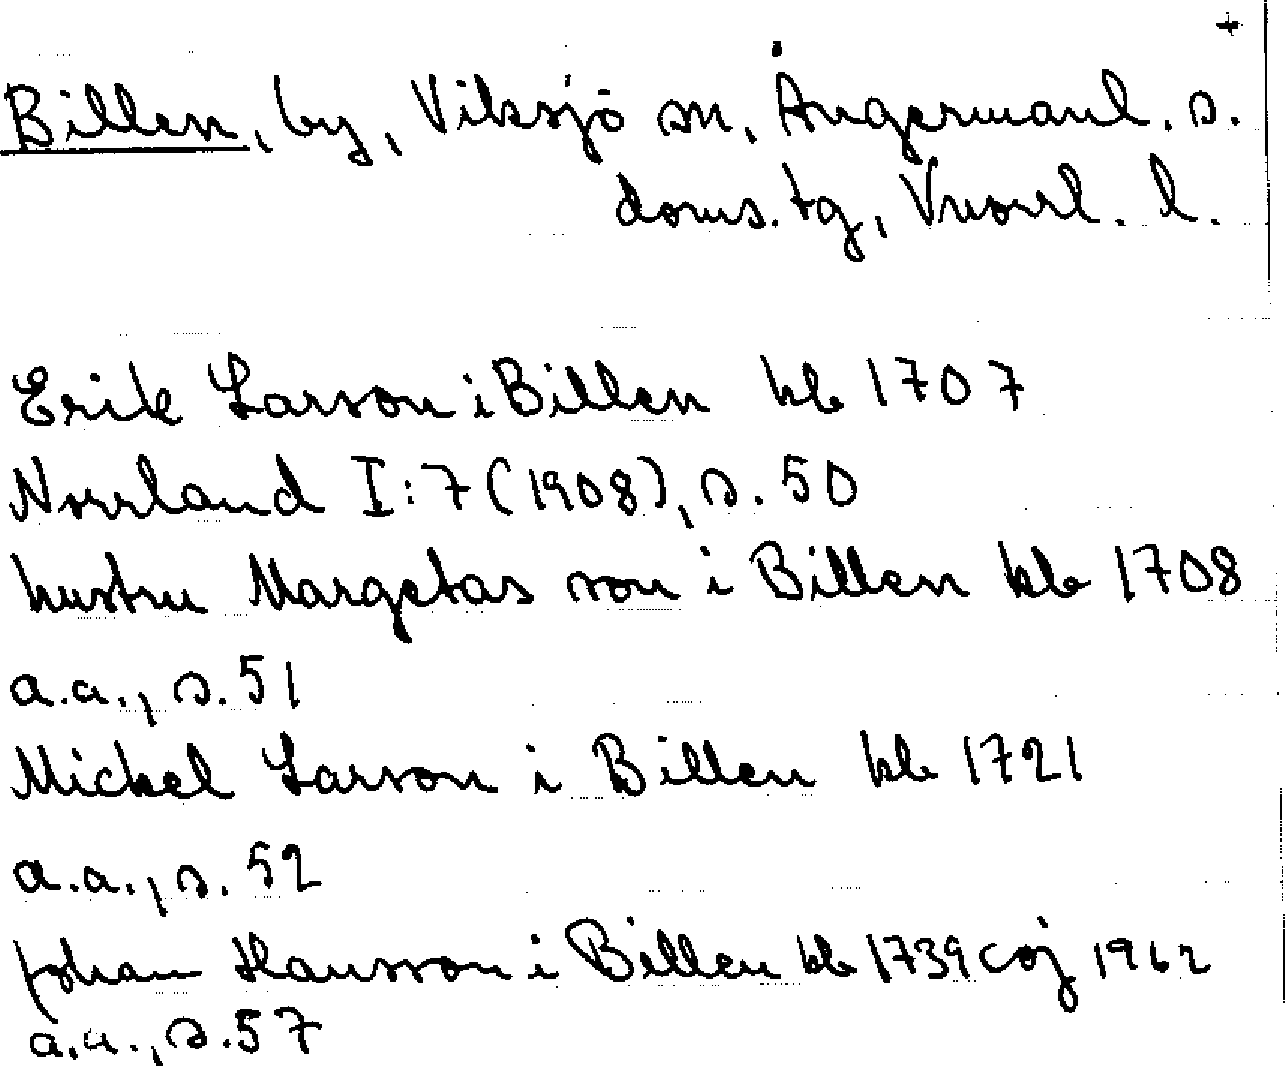 +
Billen, by, Viksjö sn, Ångermanl. s.
doms. tg, Vnorrl. l.
Erik Larson i Billen kb 1707
Norrland I:7 (1908), s. 50
hustru Margetas son i Billen kb 1708
a.a., s. 51
Mickel Larson i Billen kb 1721
a.a., s. 52
Johan Hansson i Billen kb 1739 CÖJ 1962
a.a., s. 57